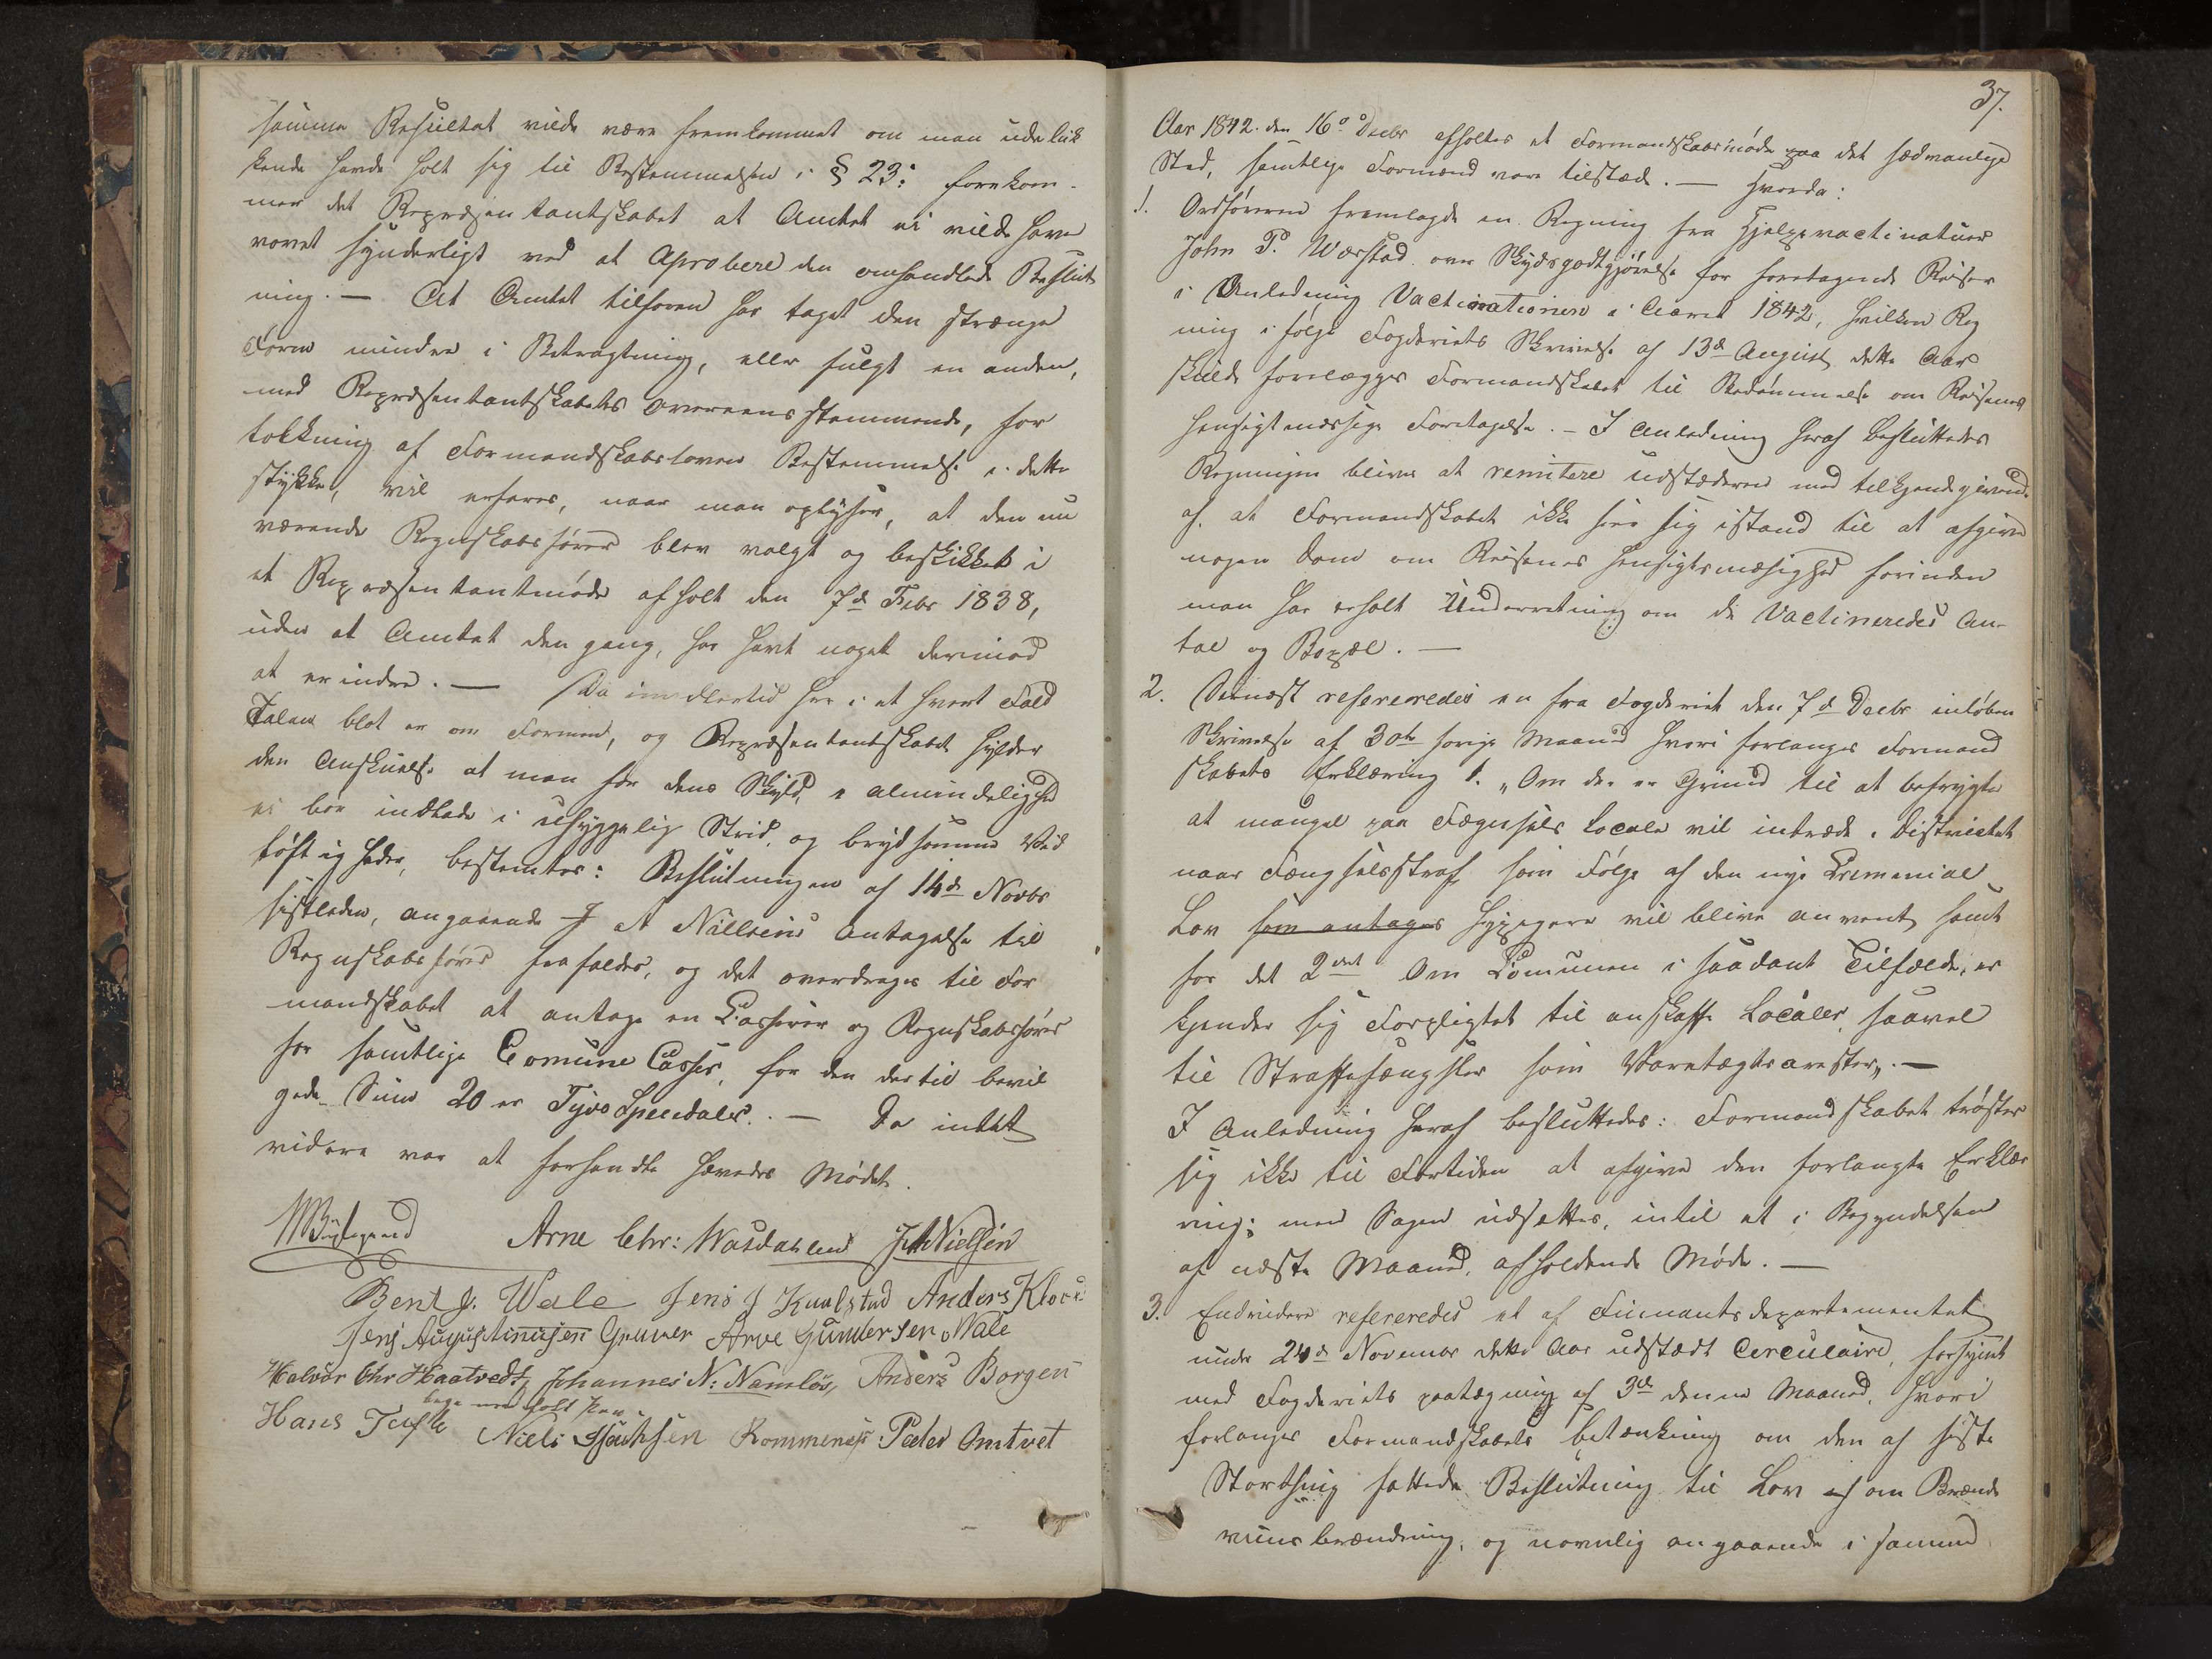 samme Resultat vilde være fremkommet om man udeluk
kende havde holt sig til Bestemmelsen i § 23: forekom-
mer det Repræsentantskabet at Amtet ei vilde have
vovet synderligt ved at Aprobere den omhandlede Beslut
ning. — At Amtet tilforen har taget den strænge
Form mindre i Betragtning, eller fulgt en anden,
med Repræsentantskabets overeensstemmende, for
tolkning af Formandskabsloven Bestemmelse i dette
stykke, vil erfares, naar man oplyser, at den nu
værende Regnskabsfører blev valgt og beskikket i
et Repræsentantmøde afholt den 7d Febr 1838,
uden at Amtet den gang, har havt noget derimod
at erindre. — Da imidlertid her i et hvert Fald
Talen blot er om Formen, og Repræsentantskabet hylder
den Anskuelse at man for dens Skyld, i almindelighed
ei bør indlade i uhyggelig Strid, og brydsomme Vid
løftigheder, bestemtes: Beslutningen af 14de Novbr
sistleden, angaaende J A Nillsens antagelse til
Regnskabsfører frafaldes, og det overdrages til For
mandskabet at antage en Casserer og Regnskabsfører
for samtlige Comune Casser, for den dertil bevil
gede Sum 20 er Tyve Speciedaler. — Da intet
videre var at forhandle hævedes Mødet.
Arne Chr: Wasdahlen JANielsen
Bent J. Wale Jens J Knalstad Anders Klo
Jens Augustinusen Gruver Arve Gundersen Wale
Halvor Chr Haatvedt, Johannes N: Namløs, Anders Borgen
Hans Tufte Niels Isachsen Rommenes Peder Omtvet
37.
Aar 1842. den 16de Decbr afholtes et Formandskabsmøde paa det sædvanlige
Sted, samtlige Formænd vare tilstæde. — Hvorda:
1. Ordføreren fremlagde en Regning fra Hjelpevactinatuer
John P. Wærstad over Skydsgodtgjørelse for foretagende Reiser
i Anledning Vactinationen i Aaret 1842, hvilken Reg
ning i følge Fogderiets Skrivelse af 13de August dette Aar
skulde forelægges Formandskabet til Bedømmelse om Reisenes
hensigtmæssige Foretagelse. — I Anledning heraf besluttedes
Regningen bliver at remitere udstæderen med tilkjendegivende
af, at Formandskabet ikke seer sig istand til at afgive
nogen dom om Reisenes hensigtsmæsighed forinden
man har erholt Underretning om de Vactineredes An-
tal og Bopæl. —
2. Dernæst refereredes en fra Fogderiet den 7de Decbr inløben
Skrivelse af 30te forige Maaned hvori forlanges Formand
skabets Erklæring 1. „Om der er Grund til at befrygte
at mangel paa Fægnsels Locale vil intræde i Districtet
naar Fængselsstraf som Følge af den nye Cremenial
Lov som antages hyppigere vil blive anvent samt
for det 2det Om Comunen i saadant Tilfælde, er
kjender sig Forpligtet til anskaffe Localer, saavel
til Straffefængsler som Varetægtsarester„. —
I Anledning heraf besluttedes: Formandskabet trøster
sig ikke til Fortiden at afgive den forlangte Erklæ
ring; men Sagen udsættes, intil et i Begyndelsen
af næste Maaned, afholdende Møde. —
3. Endvidere refereredes et af Finantsdepartementet
under 24de November dette Aar udstædt Cerculaire, forsynt
med Fogderiets paategning af 3de denne Maaned, hvori
forlanges Formandskabets betænkning om den af siste
Storthing fattede Beslutning til Lov af om Brænde
viinsbrænding, og navnlig angaaende i samme